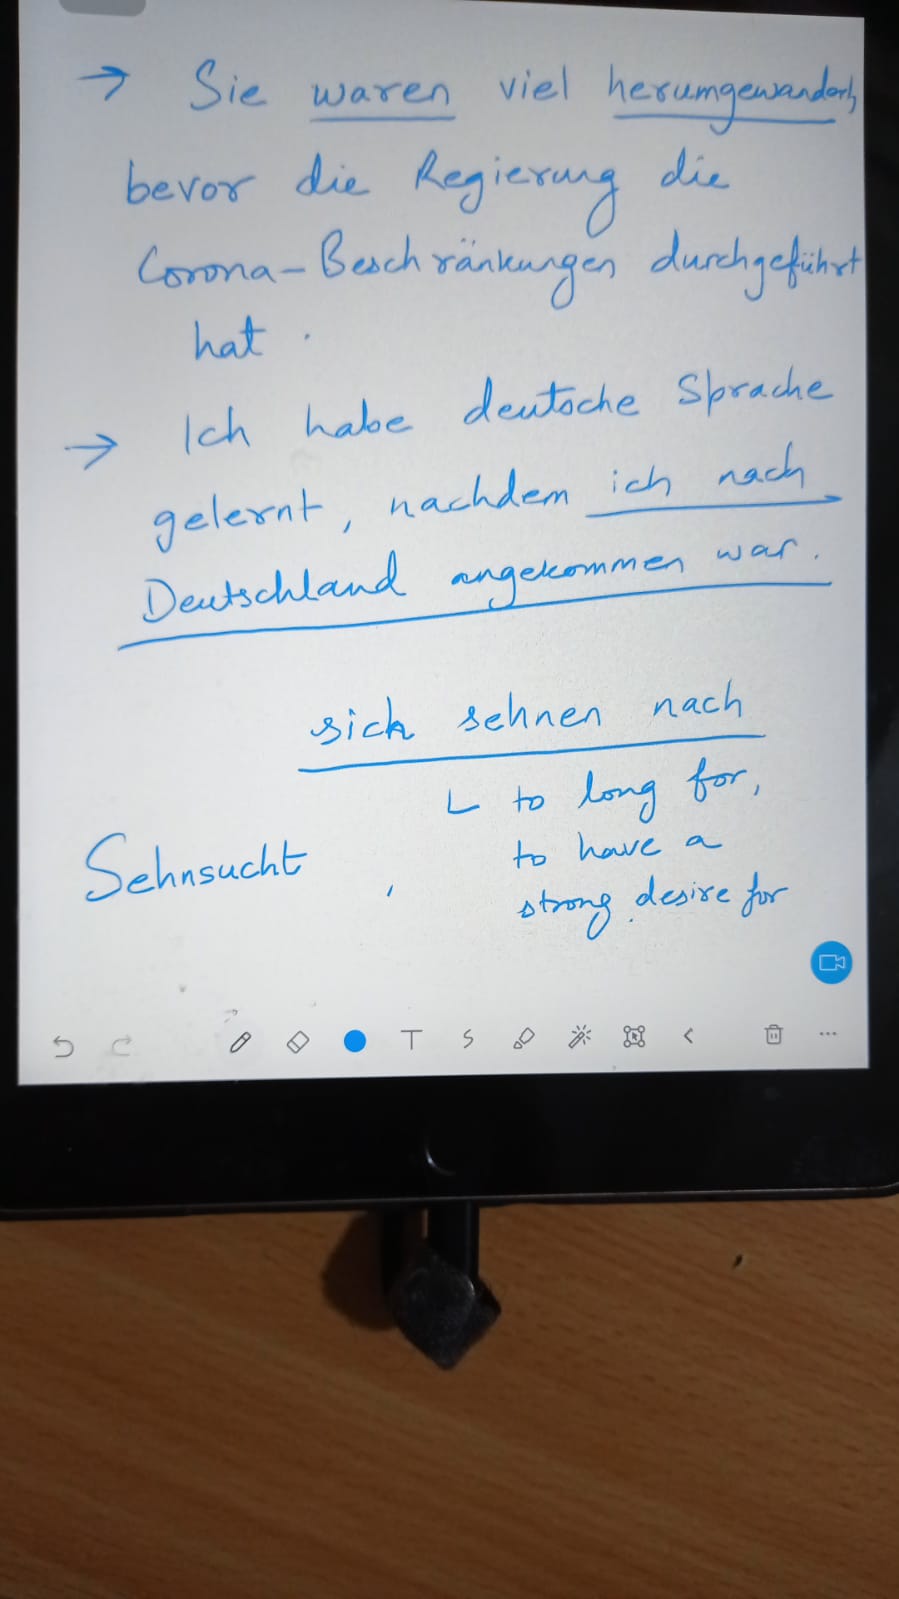 → Sie waren viel herumgewandert,
bevor die Regierung die
Corona-Beschränkungen durchgeführt
hat.
→ Ich habe deutsche Sprache
gelernt, nachdem ich nach
Deutschland angekommen war.
sich sehnen nach
↳ to long for,
to have a
Sehnsucht,
strong desire for
T